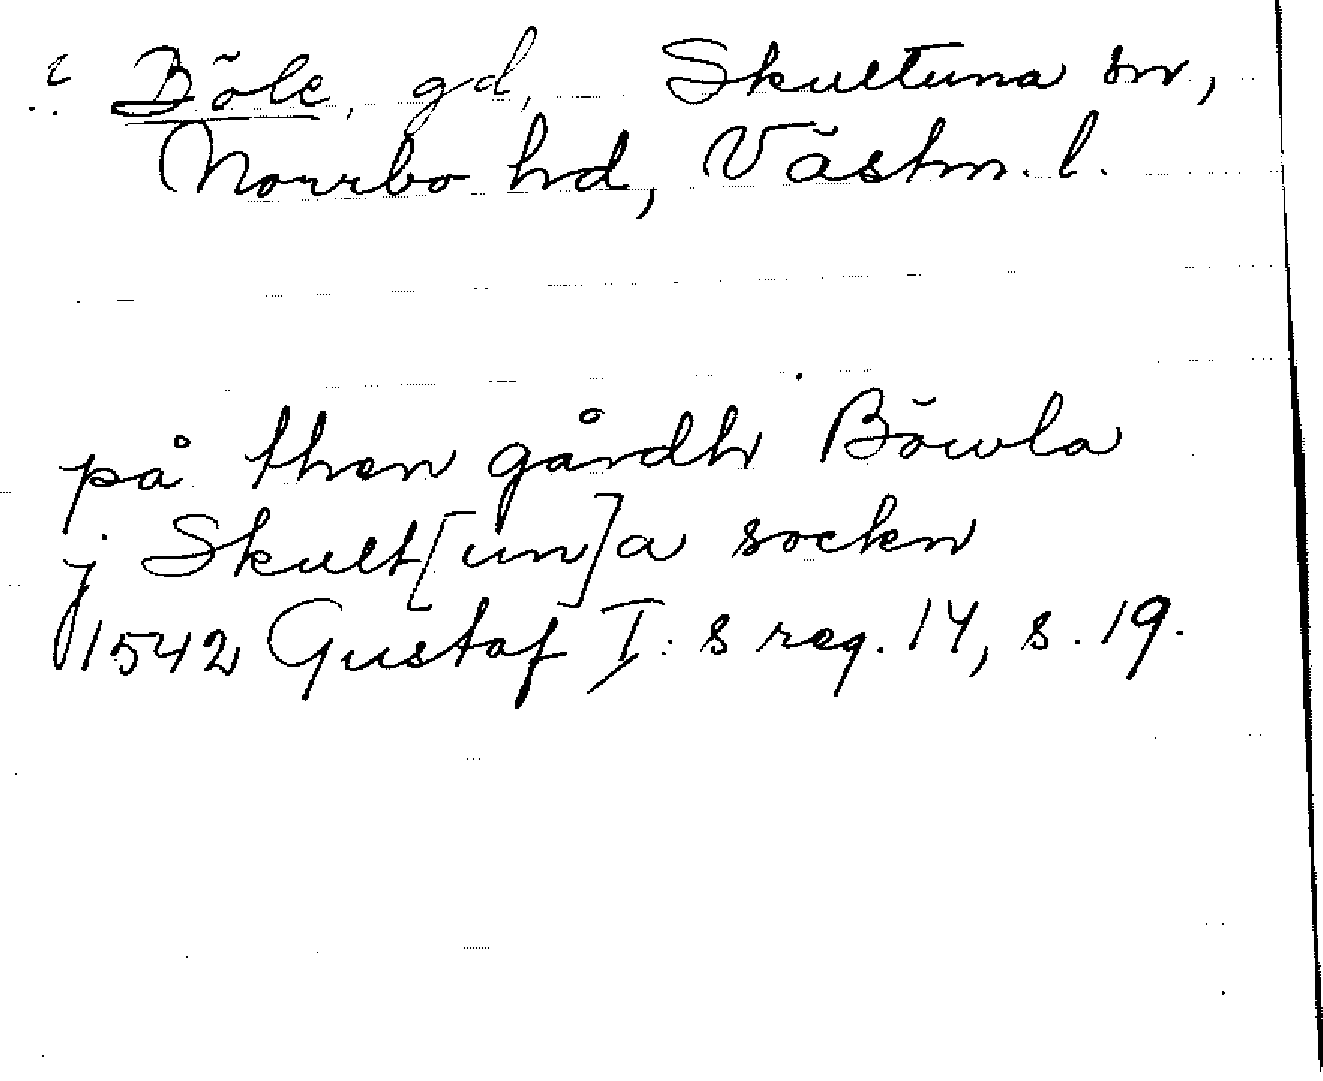 Böle, gd, Skultuna sn,
Norrbo hd, Västm. l.
på then gårdh Böwla
j Skult[un]a sockn
1542 Gustaf I: s reg. 14, s. 19.